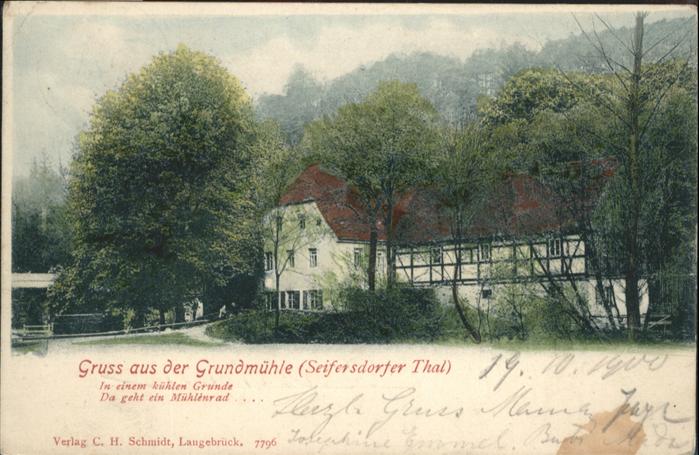 Gruss aus der Grundmühle (Seifersdorfer Thal)
In einem kühlen Grunde
Da geht ein Mühlenrad . . . .
19. 10. 1900
Herzl. Gruss Mama
Josephine Emmel.
Verlag C. H. Schmidt, Langebrück. 7796